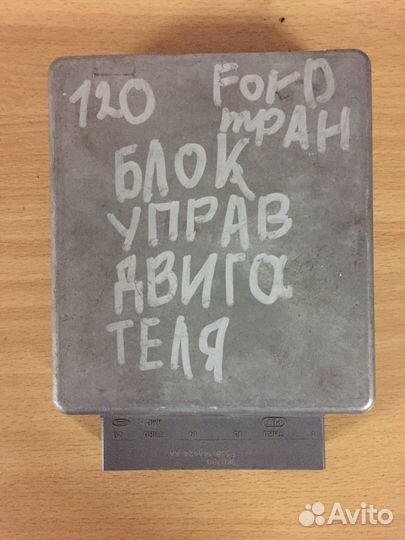 120 FORD
трАН
БЛОК
УПРАВ
ДВИГА
ТЕЛЯ
Avito